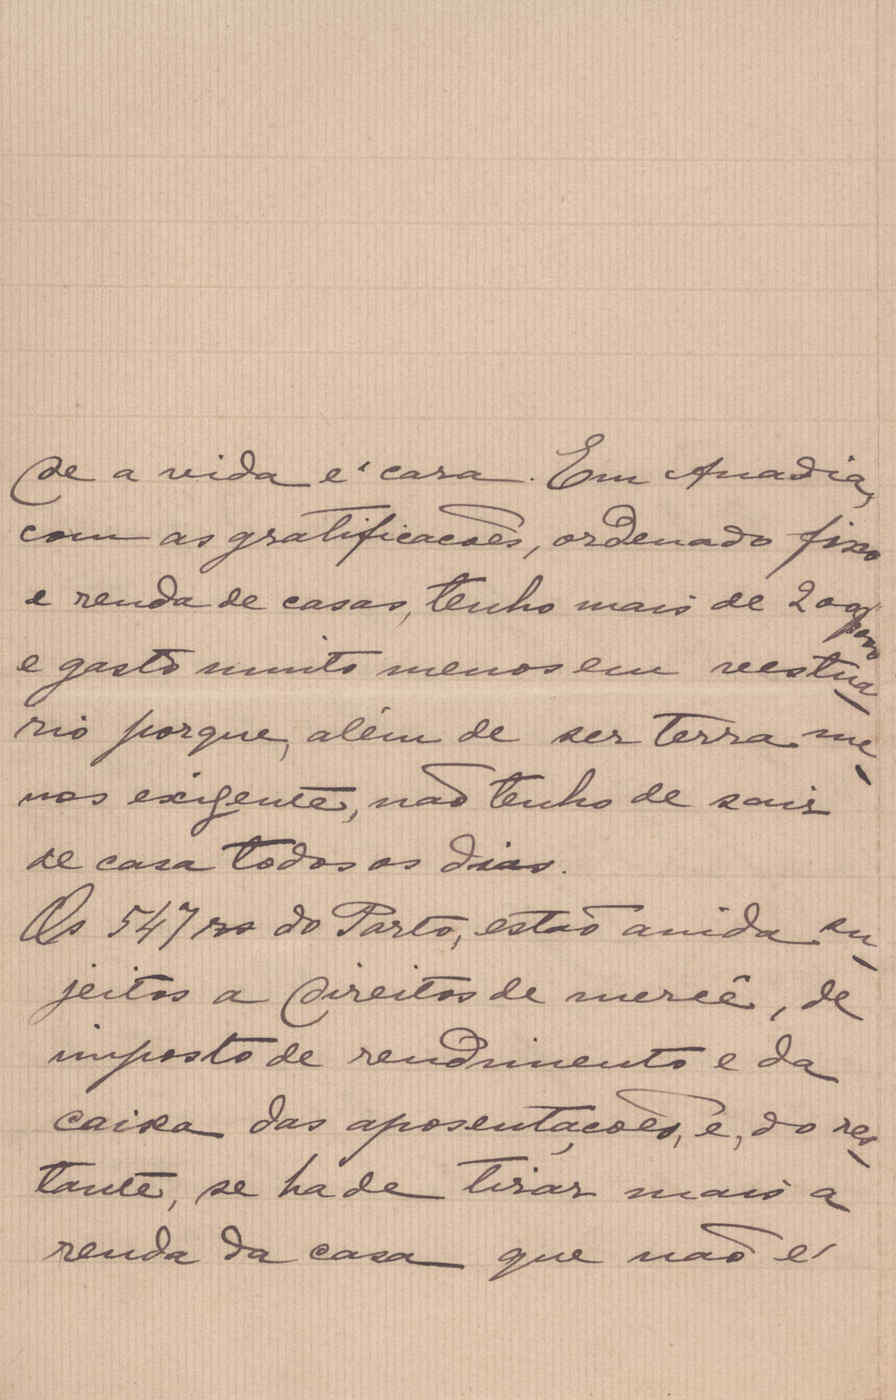 de a vida e' cara. Em Anadia,
com as gratificacões, ordenado fixo
e renda de casas, tenho mais de
e gasto muito menos em vestua-
rio porque, além de ser terra me-
nos exigente, não tenho de sair
de casa todos os dias.
Os 547 rs do Porto, estão ainda su-
jeitos a direitos de mercê, de
imposto de rendimento e da
caixa das aposentações, e, do res-
tante, se hade tirar mais a
renda da casa que não é